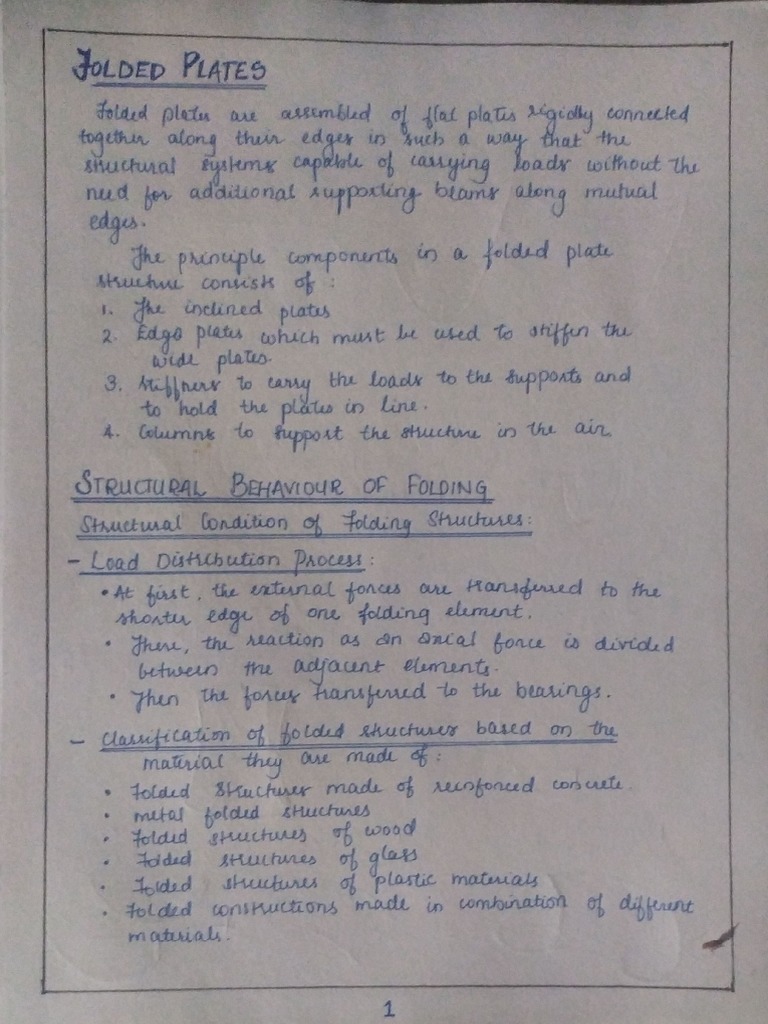 FOLDED PLATES
Folded plates are assembled of flat plates rigidly connected
together along their edges in such a way that the
structural systems capable of carrying loads without the
need for additional supporting beams along mutual
edges.
The principle components in a folded plate
structure consists of :
1. The inclined plates
2. Edge plates which must be used to stiffen the
wide plates.
3. Stiffners to carry the loads to the supports and
to hold the plates in line.
4. Columns to support the structure in the air.
STRUCTURAL BEHAVIOUR OF FOLDING
Structural Condition of Folding Structures:
- Load Distribution Process:
• At first, the external forces are transferred to the
shorter edge of one folding element.
• There, the reaction as an axial force is divided
between the adjacent elements.
• Then the forces transferred to the bearings.
- Classification of folded structures based on the
material they are made of:
• Folded Structures made of reinforced concrete.
• metal folded structures
• Folded structures of wood
• Folded structures of glass
• Folded structures of plastic materials
• Folded constructions made in combination of different
materials.
1